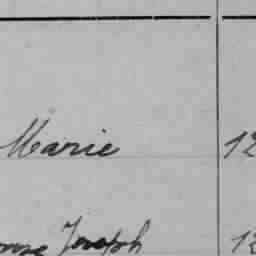 Marie 12
Joseph 12